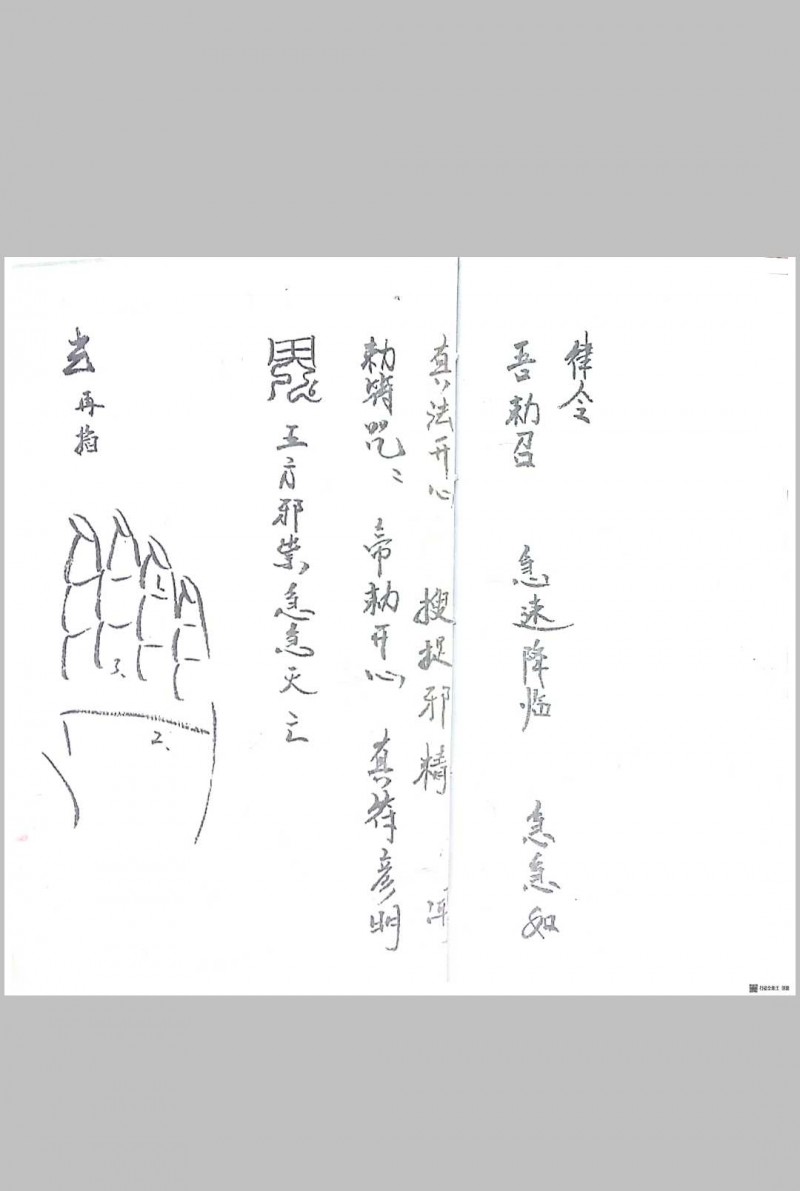 去 再掐
1、
3、
2、
五方邪祟急急灭亡
勅符咒〻 帝勅开心 真符彦明
真法开心 搜捉邪精
吾勅召 急速降临 急急如
律令